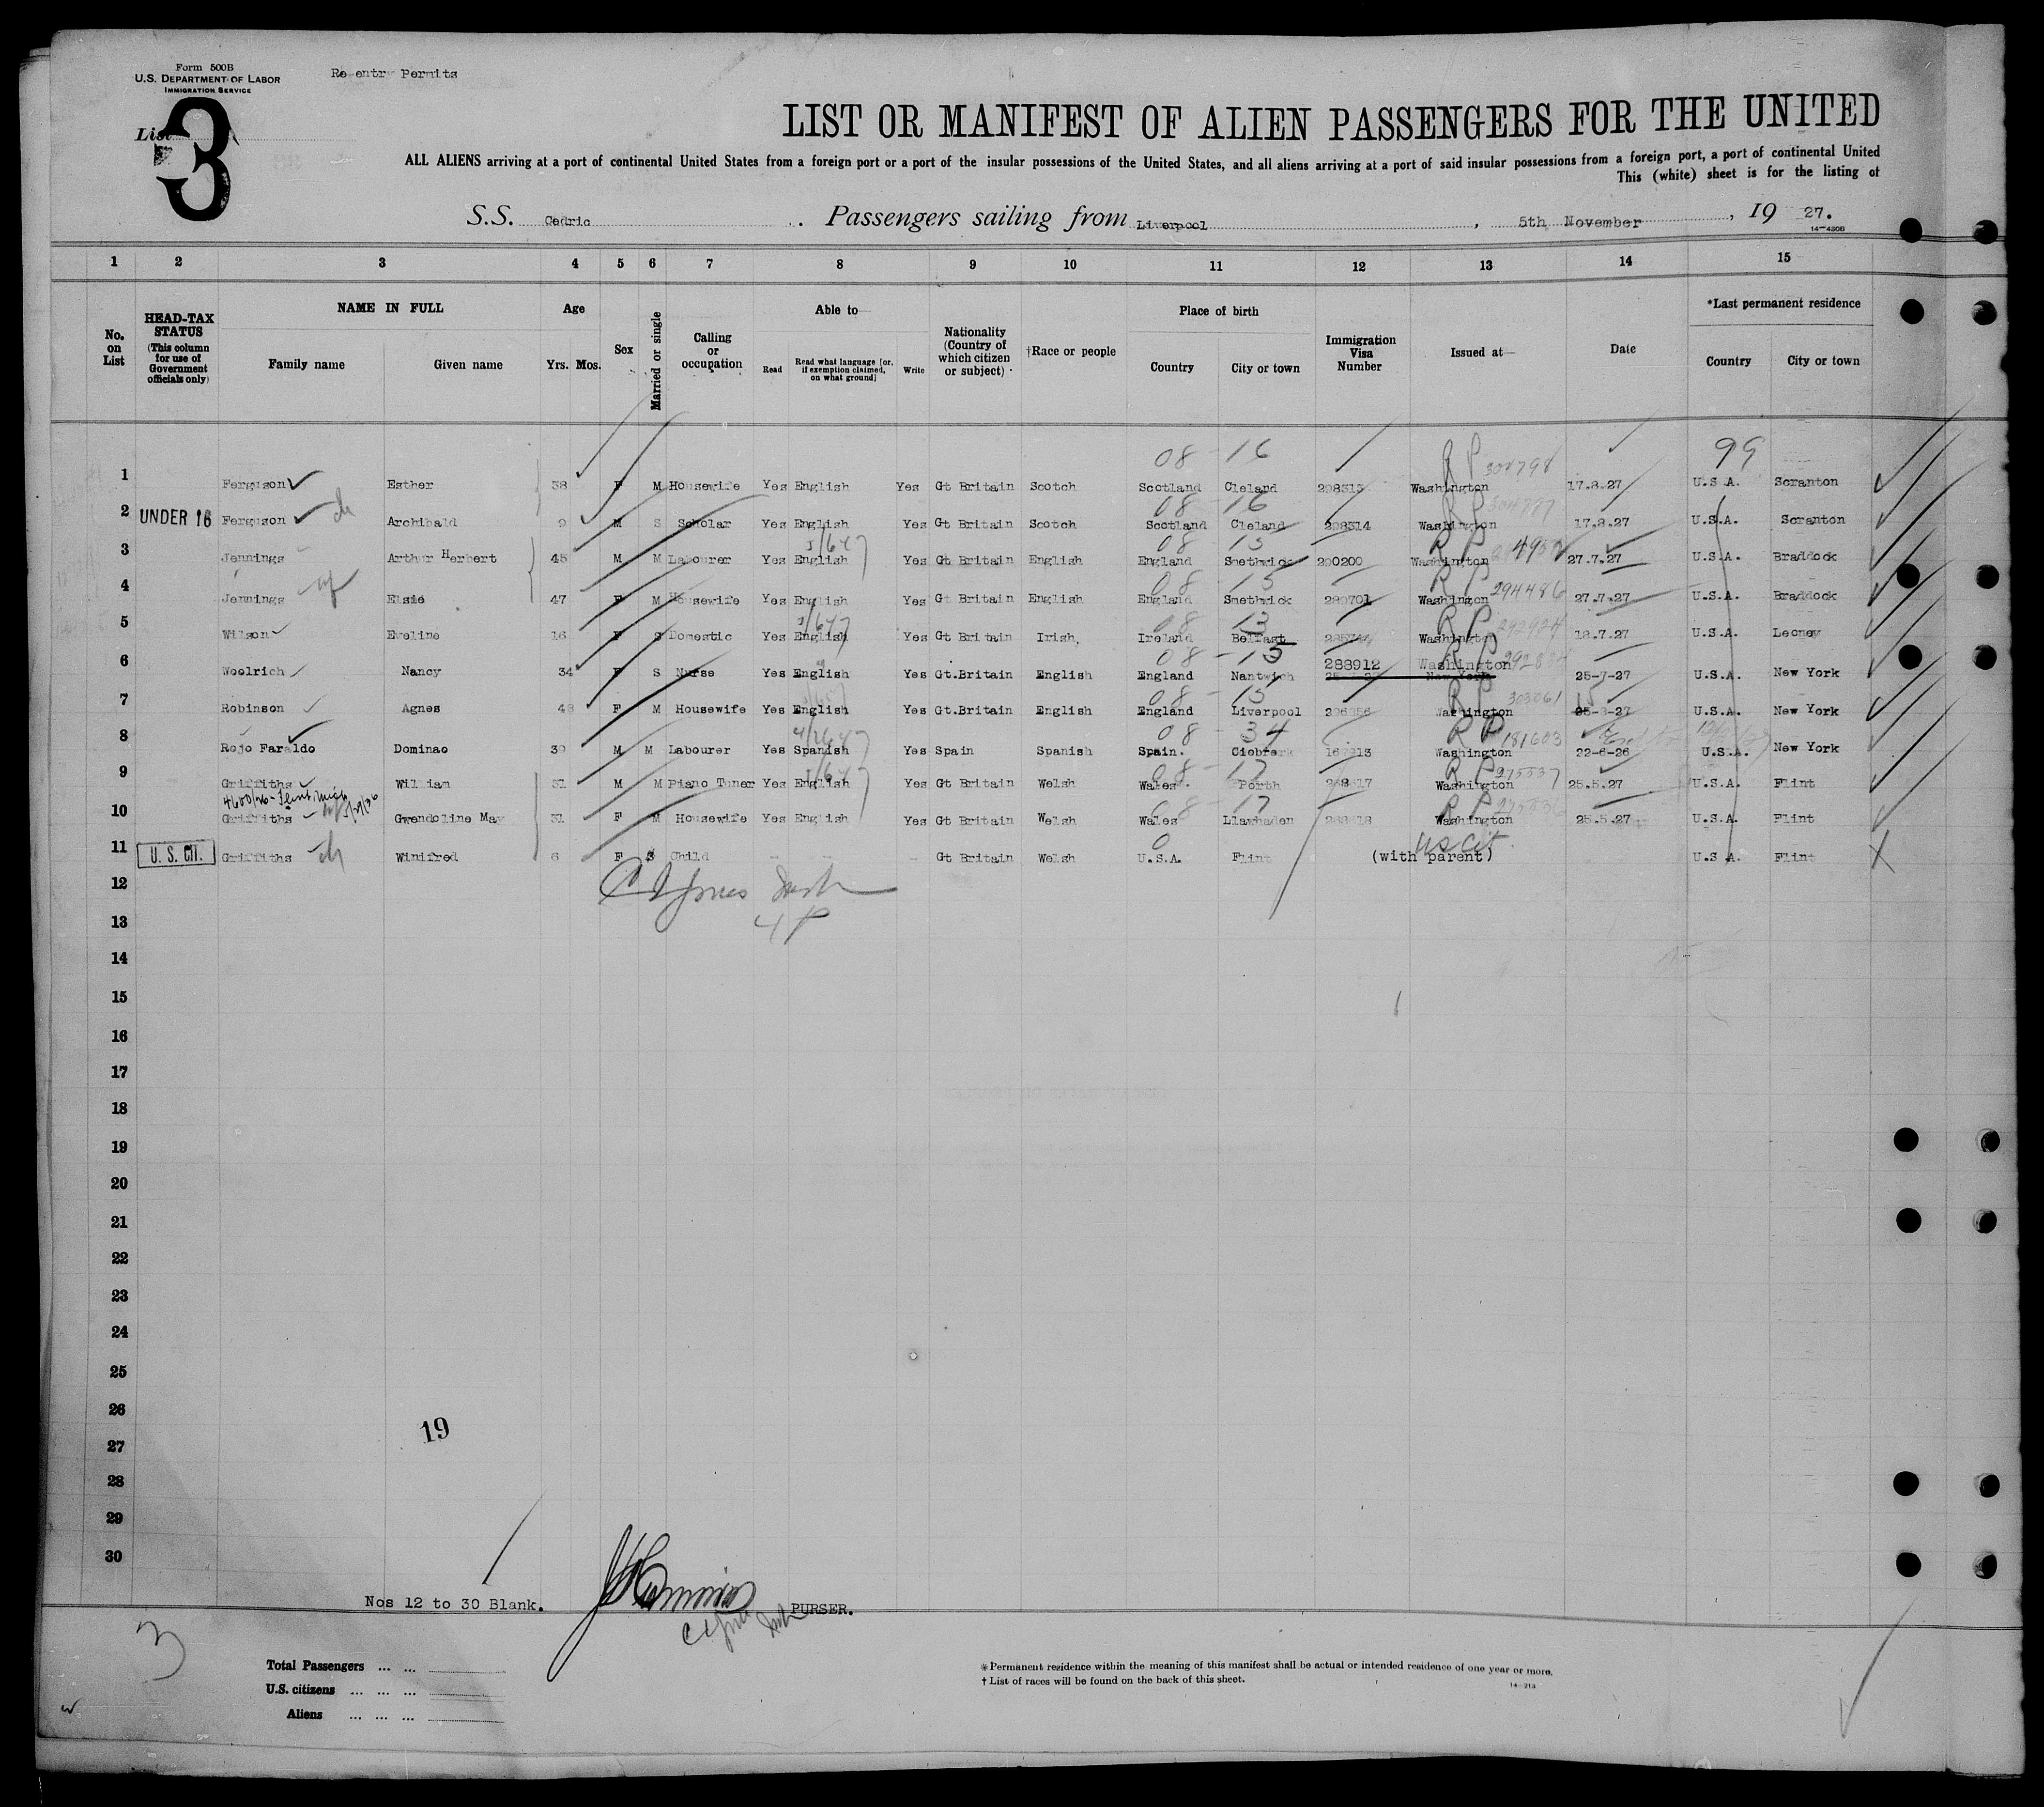 Form 500B
U.S. DEPARTMENT OF LABOR
IMMIGRATION SERVICE
Re entry Permits
List 3
LIST OR MANIFEST OF ALIEN PASSENGERS FOR THE UNITED
ALL ALIENS arriving at a port of continental United States from a foreign port or a port of the insular possessions of the United States, and all aliens arriving at a port of said insular possessions from a foreign port, a port of continental United
This (white) sheet is for the listing of
S.S. Cedric Passengers sailing from Liverpool, 5th November, 19 27.
14-4306
1 2 3 4 5 6 7 8 9 10 11 12 13 14 15
No. on List
HEAD-TAX STATUS (This column for use of Government officials only)
NAME IN FULL
Family name Given name
Age
Yrs. Mos.
Sex
Married or single
Calling or occupation
Able to—
Read Read what language [or, if exemption claimed, on what ground] Write
Nationality (Country of which citizen or subject)
†Race or people
Place of birth
Country City or town
Immigration Visa Number
Issued at—
Date
*Last permanent residence
Country City or town
08 - 16 R P 308798 99
1 Ferguson Esther 38 F M Housewife Yes English Yes Gt Britain Scotch Scotland Cleland 298315 Washington 17.8.27 U.S.A. Scranton
08 - 16
2 UNDER 16 Ferguson ch Archibald 9 M S Scholar Yes English Yes Gt Britain Scotch Scotland Cleland 298314 Washington 17.8.27 U.S.A. Scranton
08 - 15 R P
3 Jennings Arthur Herbert 45 M M Labourer Yes English Yes Gt Britain English England Smethwick 290200 Washington 27.7.27 U.S.A. Braddock
08 - 15 R P 294486
4 Jennings wf Elsie 47 F M Housewife Yes English Yes Gt Britain English England Smethwick 289701 Washington 27.7.27 U.S.A. Braddock
08 13 R P
5 Wilson Eveline 16 F S Domestic Yes English Yes Gt Britain Irish. Ireland Belfast Washington 18.7.27 U.S.A.
08 - 15 288912 Washington R P
6 Woolrich Nancy 34 F S Nurse Yes English Yes Gt.Britain English England Nantwich New York 25-7-27 U.S.A. New York
08 - 15 R P 303061
7 Robinson Agnes 48 F M Housewife Yes English Yes Gt.Britain English England Liverpool Washington U.S.A. New York
08 - 34 R P 181603
8 Rojo Faraldo Dominao 39 M M Labourer Yes Spanish Yes Spain Spanish Spain. Washington 22-6-26 U.S.A. New York
08 - 17 R P 275537
9 Griffiths William 31 M M Piano Tuner Yes English Yes Gt Britain Welsh Wales Porth Washington 25.5.27 U.S.A. Flint
08 - 17 R P 275536
10 Griffiths Gwendoline May 31 F M Housewife Yes English Yes Gt Britain Welsh Wales Llawhaden Washington 25.5.27 U.S.A. Flint
0 US Cit.
11 U. S. CIT. Griffiths ch Winifred 6 F S Child Gt Britain Welsh U.S.A. Flint (with parent) U.S.A. Flint
12
13
14
15
16
17
18
19
20
21
22
23
24
25
26
19
27
28
29
30
Nos 12 to 30 Blank.
PURSER.
3
Total Passengers ... ...
U.S. citizens ... ... ...
Aliens ... ... ...
*Permanent residence within the meaning of this manifest shall be actual or intended residence of one year or more.
†List of races will be found on the back of this sheet.
14-213